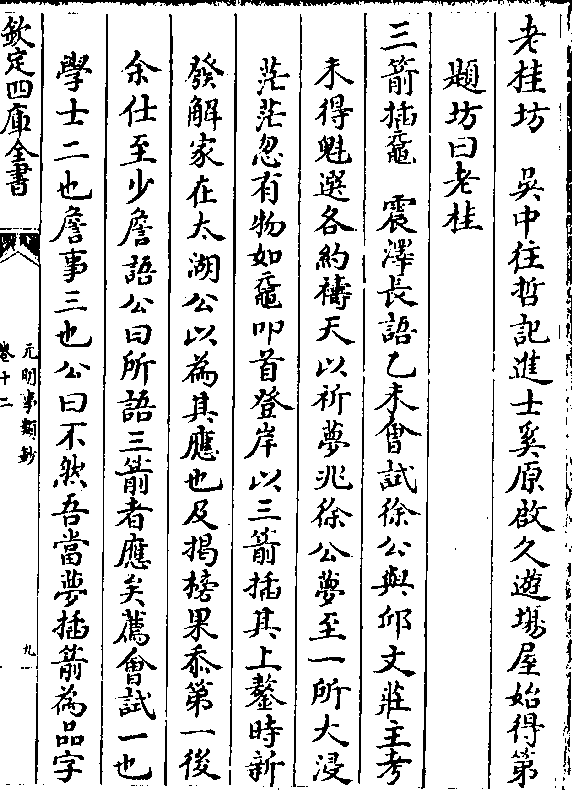 老桂坊　吳中往哲記進士奚原啟久遊場屋始得第
題坊曰老桂
三箭插黿　震澤長語乙未會試徐公與邱文莊主考
未得魁選各約禱天以祈夢兆徐公夢至一所大浸
茫茫忽有物如黿叩首登岸以三箭插其上鏊時新
發解家在太湖公以為其應也及揭榜果忝第一後
余仕至少詹語公曰所語三箭者應矣薦會試一也
學士二也詹事三也公曰不然吾當夢插箭為品字
欽定四庫全書
元明事類鈔
卷十二
九